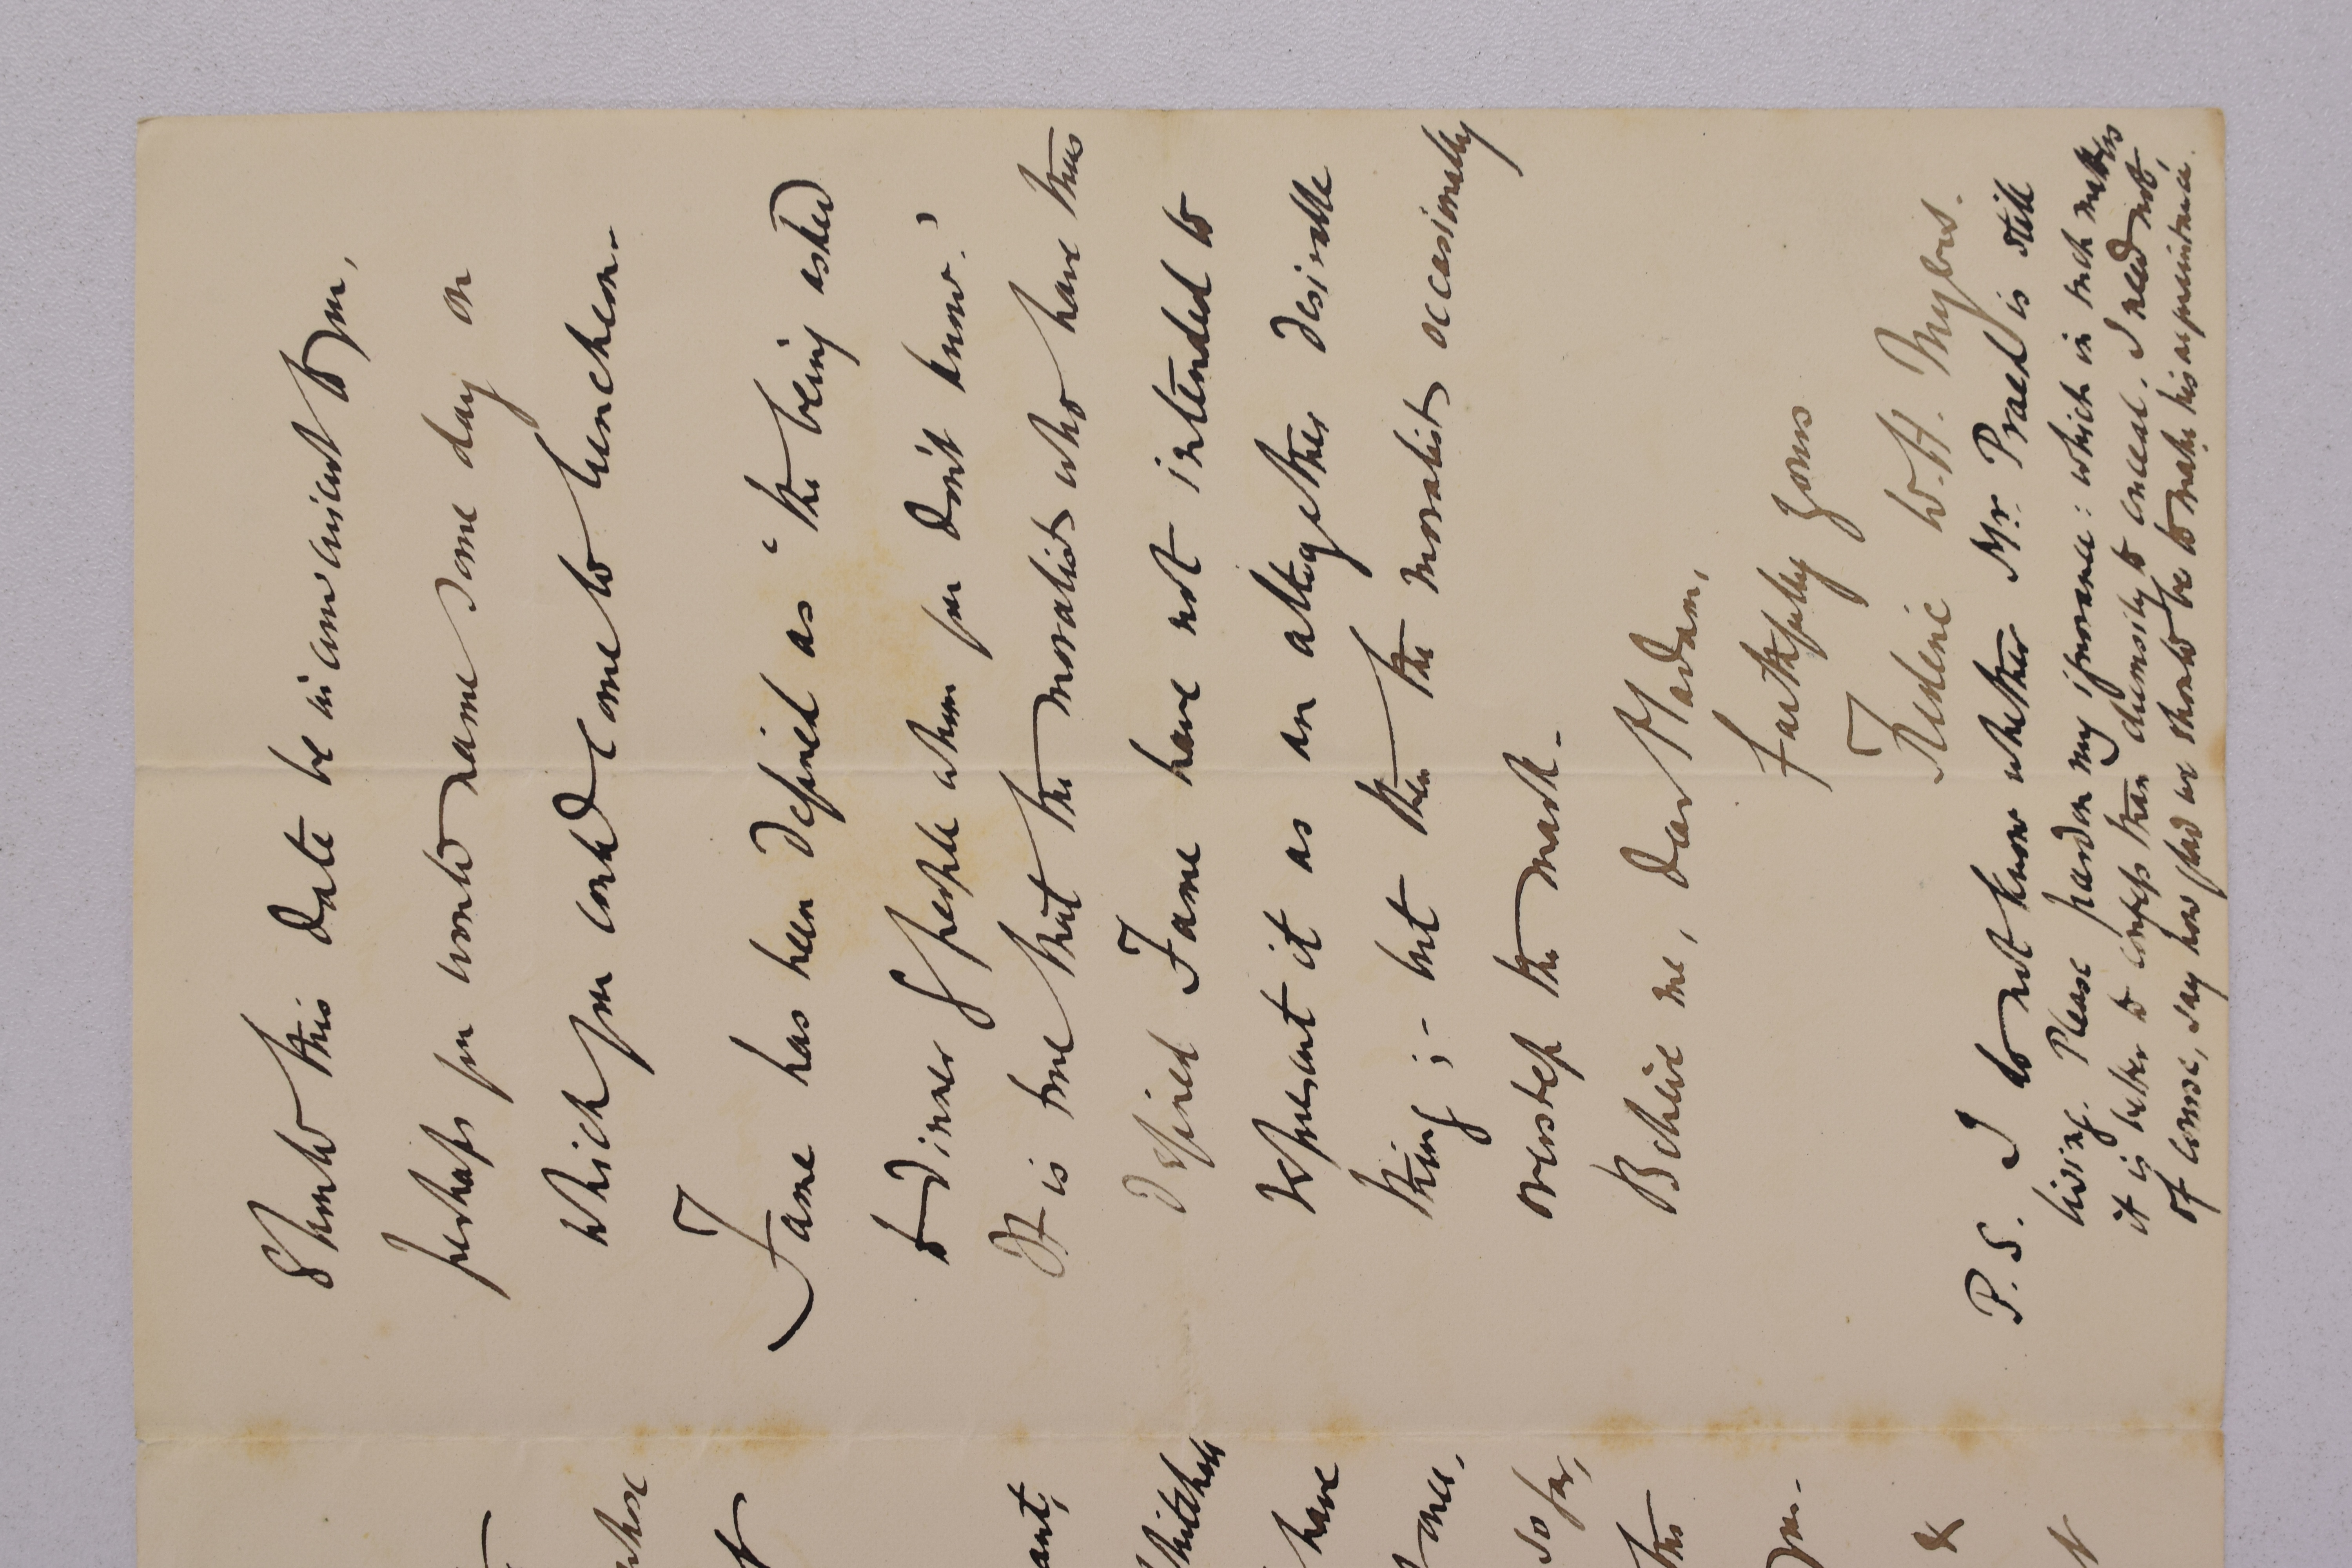 Should this date be inconvenient to you,
perhaps you would name some day on
which you could come to luncheon.
Fame has been defined as 'the being asked
to dinner by people whom you don't know.'
It is true that the moralists who have thus
defined Fame have not intended to
represent it as an altogether desirable
thing;- but then the moralists occasionally
overstep the mark.
Believe me, dear Madam,
faithfully yours
Frederic W. H. Myers.
P.S. I do not know whether Mr. Praed is still
living. Please pardon my ignorance: which in such matters
it is better to confess than clumsily to conceal. I need not,
of course, say how glad we should be to make his acquaintance.
where
ant,
Whitehall
have
once,
so far,
this
you.
&